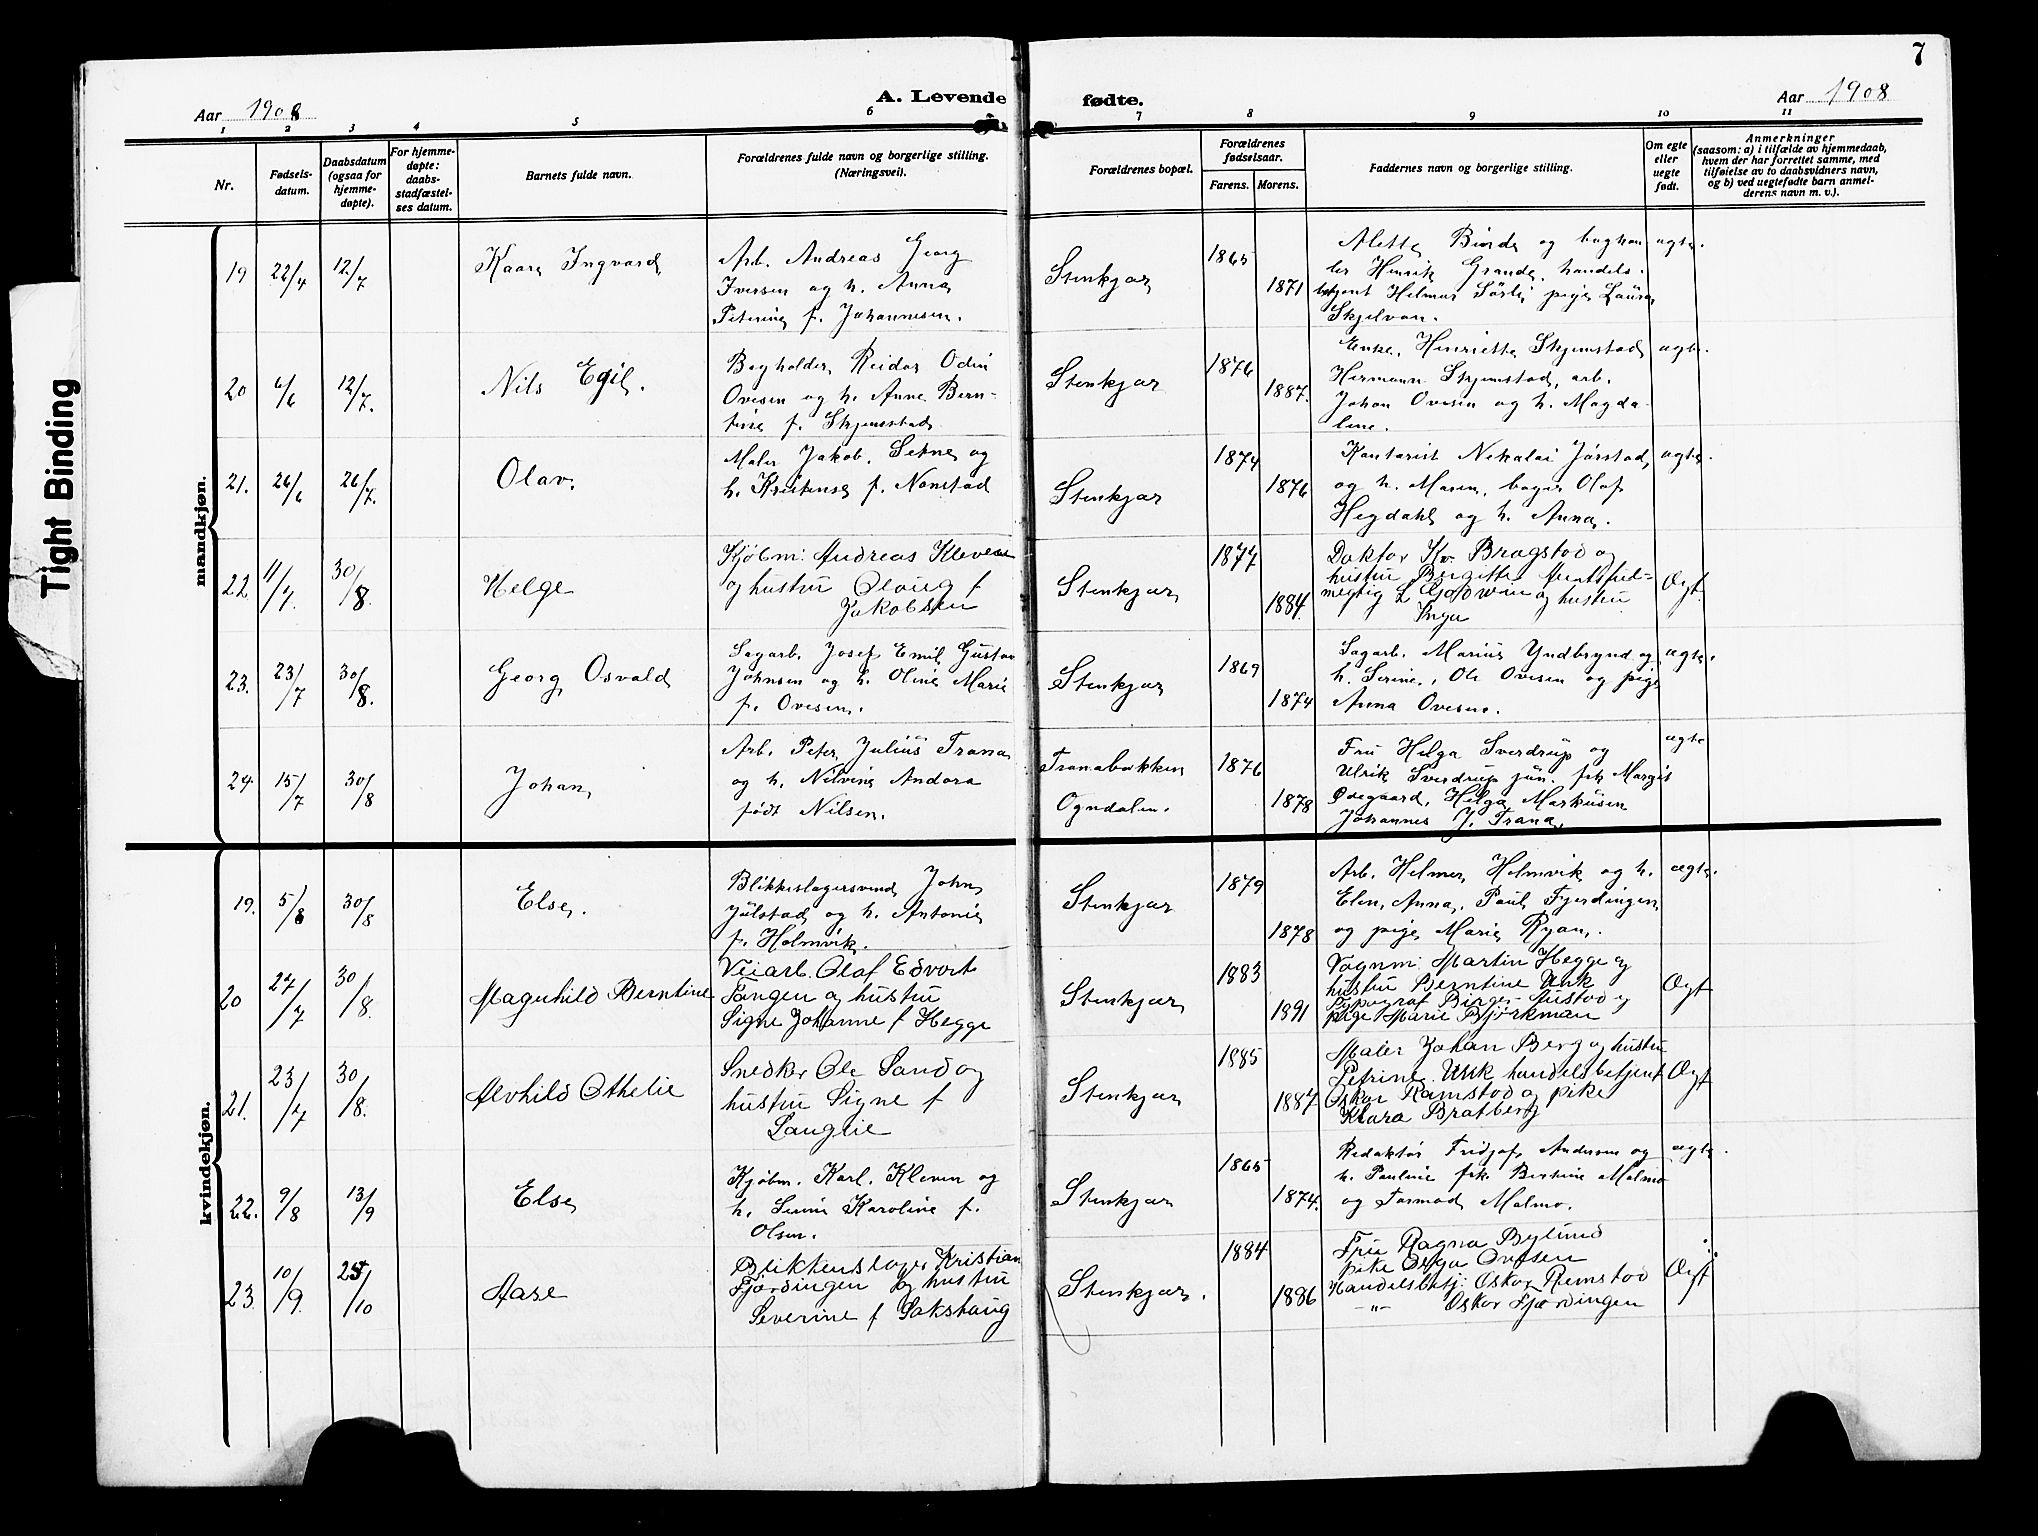 7
Aar 1908
A. Levende fødte.
Aar 1908
1 2 3 4 5 6 7 8 9 10 11
Nr.
Fødsels-
datum.
Daabsdatum
(ogsaa for
hjemme-
døpte).
For hjemme-
døpte:
daabs-
stadfæstel-
ses datum.
Barnets fulde navn.
Forældrenes fulde navn og borgerlige stilling.
(Næringsvei).
Forældrenes bopæl.
Forældrenes
fødselsaar.
Farens. Morens.
Faddernes navn og borgerlige stilling.
Om egte
eller
uegte
født.
Anmerkninger
(saasom: a) i tilfælde av hjemmedaab,
hvem der har forrettet samme, med
tilføielse av to daabsvidners navn,
og b) ved uegtefødte barn anmel-
derens navn m. v.).
Tight Binding
mandkjøn.
19 22/4 12/7
Kaare Ingvard
Arb. Andreas Georg
Iversen og h. Anna
Petrine f. Johannesen.
Stenkjær
1865
1871
Alette og boghan
ler Henrik Grande, handels-
betjent Helmer Sørli pige Laura
Skjelvan.
ægte.
20 6/6 12/7.
Nils Egil.
Bogholder Reidar Odin
Ovesen og h. Anne Bern-
tine f. Skjemstad
Stenkjær
1876
1887.
Enke Henriette Skjemstad
Hermann Skjemstad, arb.
Johan Ovesen og h. Magda-
lene.
ægte.
21. 26/6 26/7.
Olav.
Maler Jakob Setne og
h. Kristense f. Nonstad
Stenkjær
1874
1876
Kontorist Nikolai Jørstad
og h. Maren, bager Olaf
Hegdahl og h. Anna.
ægte.
22. 11/7. 30/8.
Helge
Kjøbm: Andreas Kleven
og hustru Olovig f
Jakobsen
Stenkjær
1877
1884.
Doktor Kr. Bragstad og
hustru Bergitte Amtsfuld-
megtig L og hustru
Inga
Ægt.
23. 23/7 30/8.
Georg Osvald
Sagarb. Josef Emil Gustav
Johnsen og h. Oline Marie
f. Ovesen.
Stenkjær
1869
1874
Sagarb. Marius Yndbrynd og
h. Serine, Ole Ovesen og pige
Anna Ovesen.
ægte.
24. 15/7 30/8
Johan
Arb. Peter Julius Trana
og h. Nilvine Andora
født Nilsen.
Tranabakken
Ogndalen.
1876
1878
Fru Helga Sverdrup og
Ulrik Sverdrup jun. frk Margit
Ødegaard, Helga Markusen
Johannes J. Trana.
ægte
kvindekjøn.
19. 5/8 30/8
Else.
Blikkeslagersvend John
Julstad og h. Antonie
f. Holmvik.
Stenkjær
1879
1878
Arb. Helmer Holmvik og h.
Elen Anna, Paul Fjerdingen
og pige Marie Ryan.
ægte.
20 27/7 30/8.
Magnhild Berntine
Veiarb. Olaf Edvart
Tangen og hustru
Signe Johanne f Hegge
Stenkjær
1883
1891
Vognm: Martin Hegge og
hustru Berntine Unk
Typograf Birger Austad og
pige Marie Bjørkman
Ægt
21. 23/7 30/8.
Alvhild Othelie
Snedker Ole Sand og
hustru Signe f
Langlie
Stenkjær
1885
1887
Maler Johan Berg og hustru
Petrine. Unk handelsbetjent
Oskar Ramstad og pike
Klara Bratberg
Ægt
22. 9/8 13/9
Else
Kjøbm. Karl Kleven og
h. Karoline f.
Olsen.
Stenkjær
1865
1874.
Redaktør Fridjof Andersen og
h. Pauline frk. Berntine Malmo
og Tormod Malmo.
ægte.
23. 10/9. 25/10
Aase
Blikkenslager Kristian
Fjærdingen og hustru
Severine f Sakshaug
Stenkjær.
1884
1886
Fru Ragna Bylund
pike Olga Ovesen
Handelsbetj: Oskar Remstad
-"- Oskar Fjærdingen
Ægt